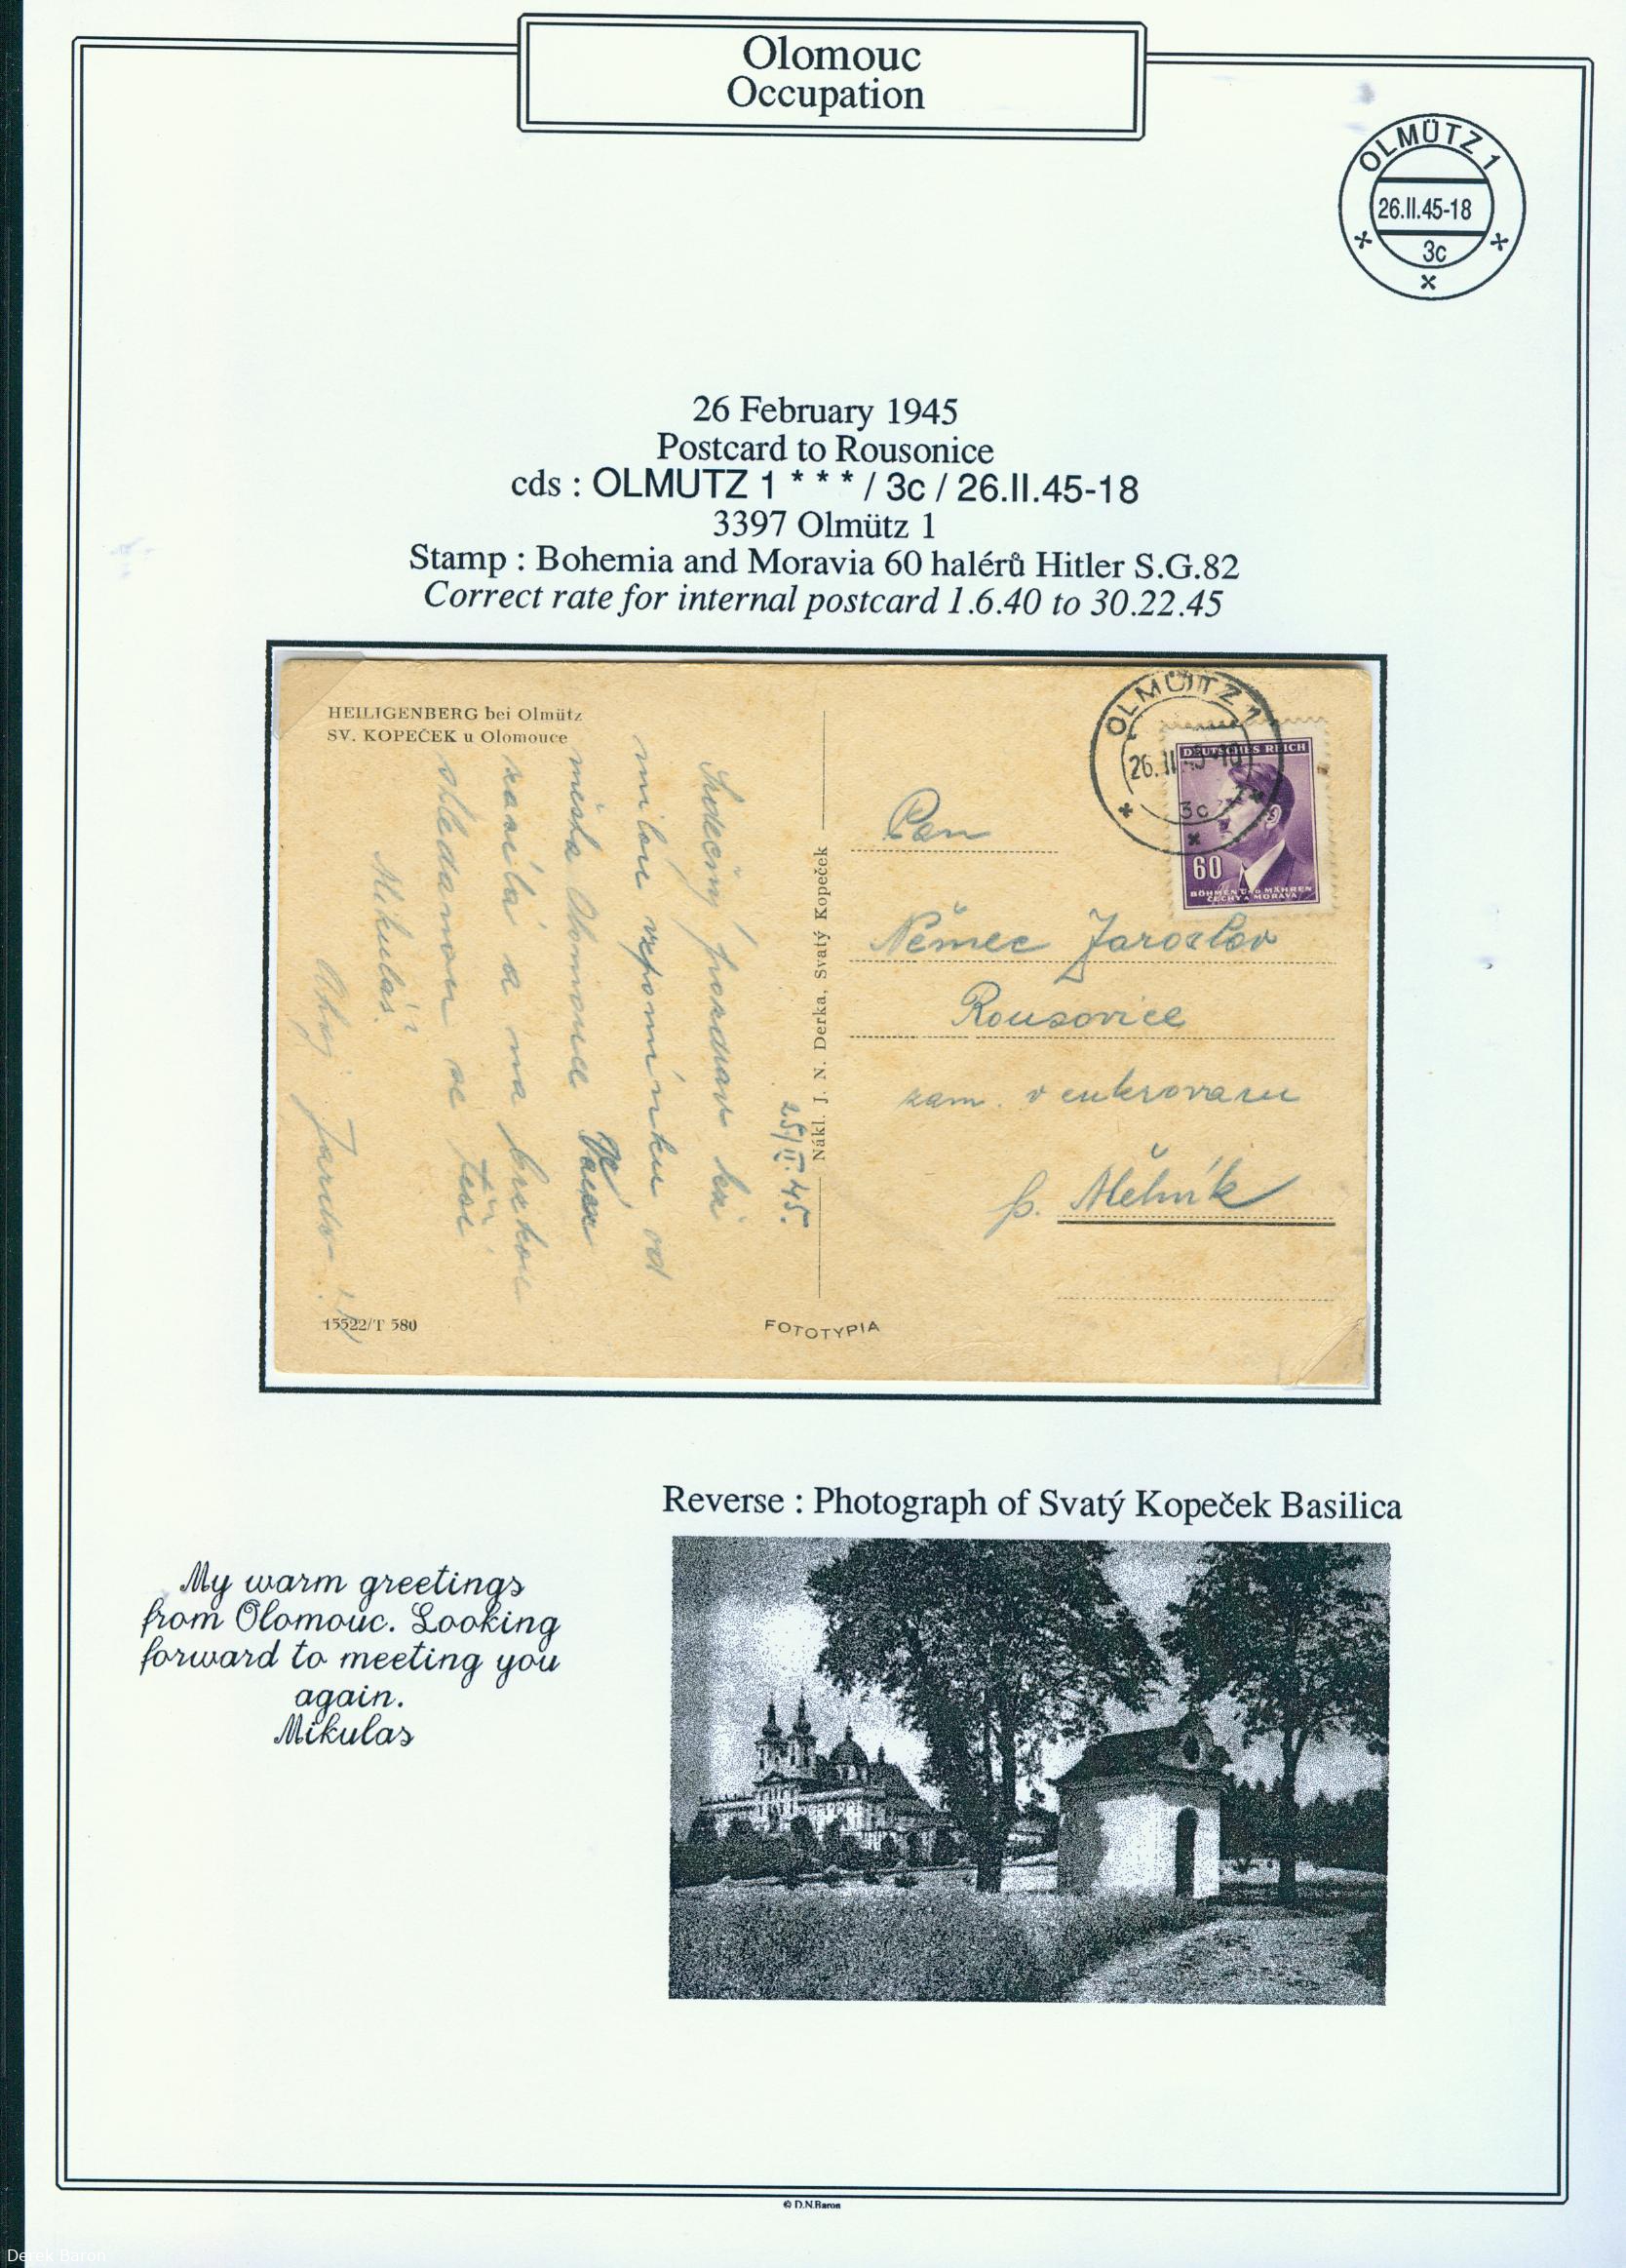 Olomouc
Occupation
OLMÜTZ 1
26.II.45-18
3c
26 February 1945
Postcard to Rousonice
cds : OLMUTZ 1 * * * / 3c / 26.II.45-18
3397 Olmütz 1
Stamp : Bohemia and Moravia 60 halérů Hitler S.G.82
Correct rate for internal postcard 1.6.40 to 30.22.45
HEILIGENBERG bei Olmütz
SV. KOPEČEK u Olomouce
25/II.45.
Srdečný pozdrav
milou vzpomínku od
města Olomouce Vám
zasílá a na brzkou
shledanou se těší
Mikuláš
Ahoj Jardo!
15522/T 580
FOTOTYPIA
Nákl. J. N. Derka, Svatý Kopeček
OLMÜTZ 1
26.II
3c
DEUTSCHES REICH
60
BÖHMEN UND MÄHREN
ČECHY A MORAVA
Pan
Němec Jaroslav
Rousovice
zam. v cukrovaru
p. Mělník
Reverse : Photograph of Svatý Kopeček Basilica
My warm greetings
from Olomouc. Looking
forward to meeting you
again.
Mikulas
© D.N.Baron
Derek Baron